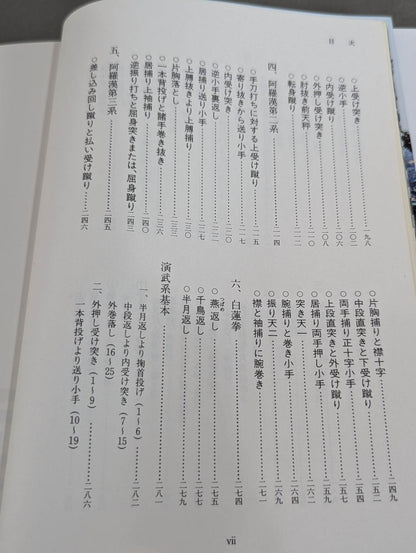 目次
○上受け突き……一九八
○逆小手……二〇〇
○外押し受け突き……二〇二
○内受け蹴り
○肘抜き前天秤……二〇八
○転身蹴り
四、阿羅漢第二系……二一四
○手刀打ちに対する上受け蹴り……二一五
○寄り抜きから送り小手
○内受け突き
○逆小手裏返し
○居捕り送り小手……二二七
○上膊抜きより上膊捕り
○片胸落とし
○一本背投げと諸手巻き抜き……二三六
○居捕り上袖捕り
○逆振り打ちと屈身突きまたは、屈身蹴り……二四三
五、阿羅漢第三系……二四五
○差し込み回し蹴りと払い受け蹴り……二四六
○片胸捕りと襟十字……二四九
○中段直突きと下受け蹴り……二五二
○両手捕り正十字小手……二五四
○上段直突きと外受け蹴り……二五六
○居捕り両手押し小手……二五八
○突き天一……二六〇
○腕捕りと巻き小手……二六三
○振り天二
○襟と袖捕りに腕巻き……二七一
六、白蓮拳……二七四
○燕返し……二七五
○千鳥返し……二七七
○半月返し……二七九
演武系基本
一、半月返しより掬首投げ（1〜6）
中段返しより内受け突き（7〜15）
外巻落し（16〜25）……二八二
二、外押し受け突き（1〜9）
一本背投げより送り小手（10〜19）……二八六
vii